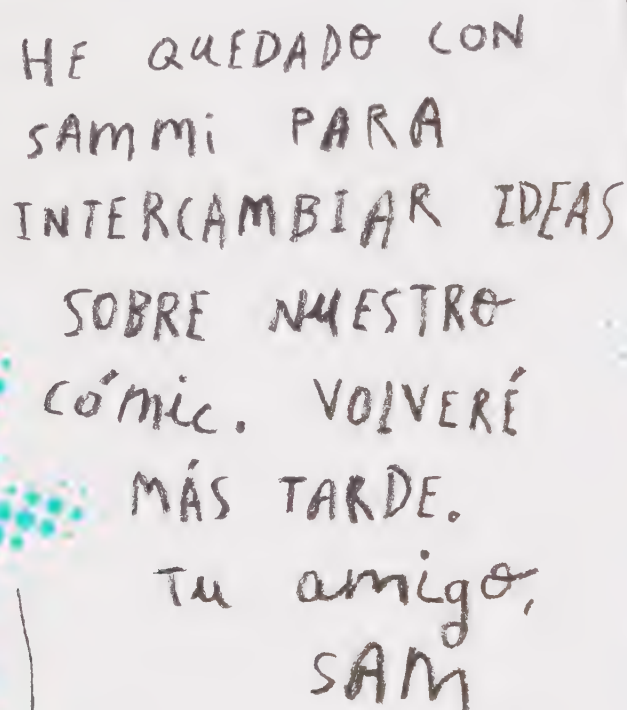 HE QUEDADO CON
SAMMi PARA
INTERCAMBIAR IDEAS
SOBRE NUESTRO
CóMic. VOLVERÉ
MÁS TARDE.
Tu amigo,
SAM